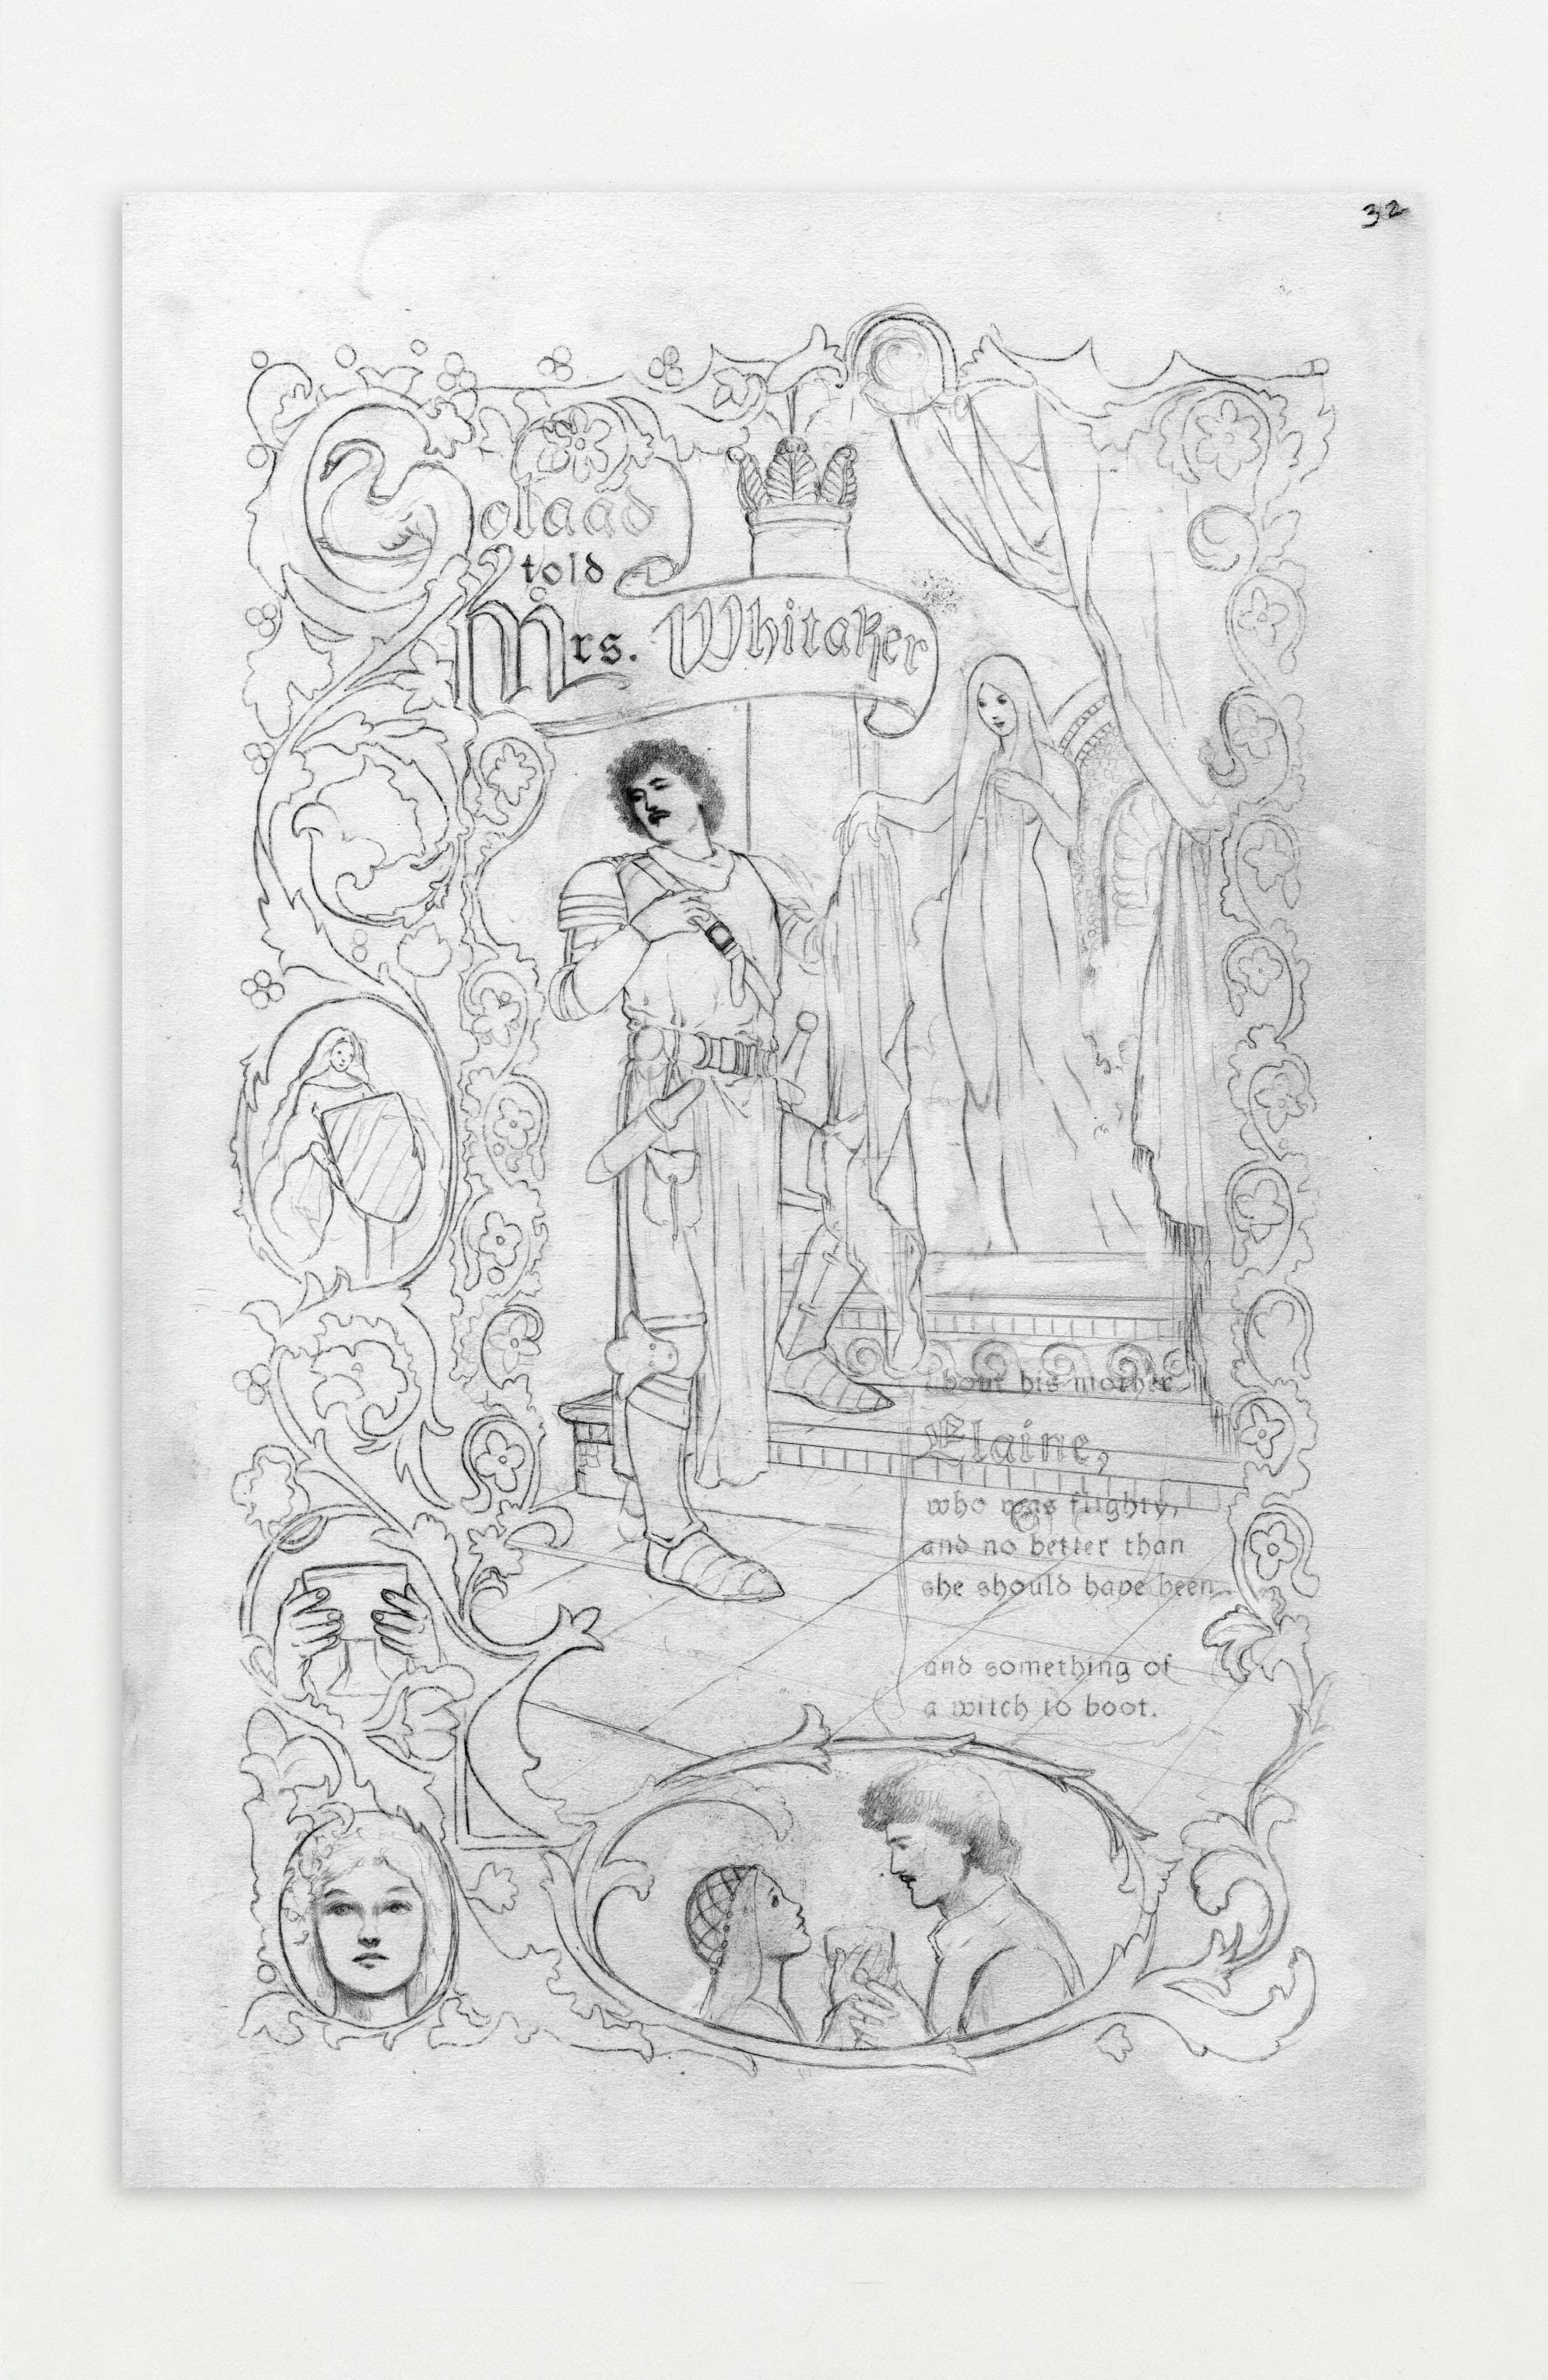 32
Galaad
told
Mrs. Whitaker
about his mother
Elaine,
who was flighty,
and no better than
she should have been
and something of
a witch to boot.